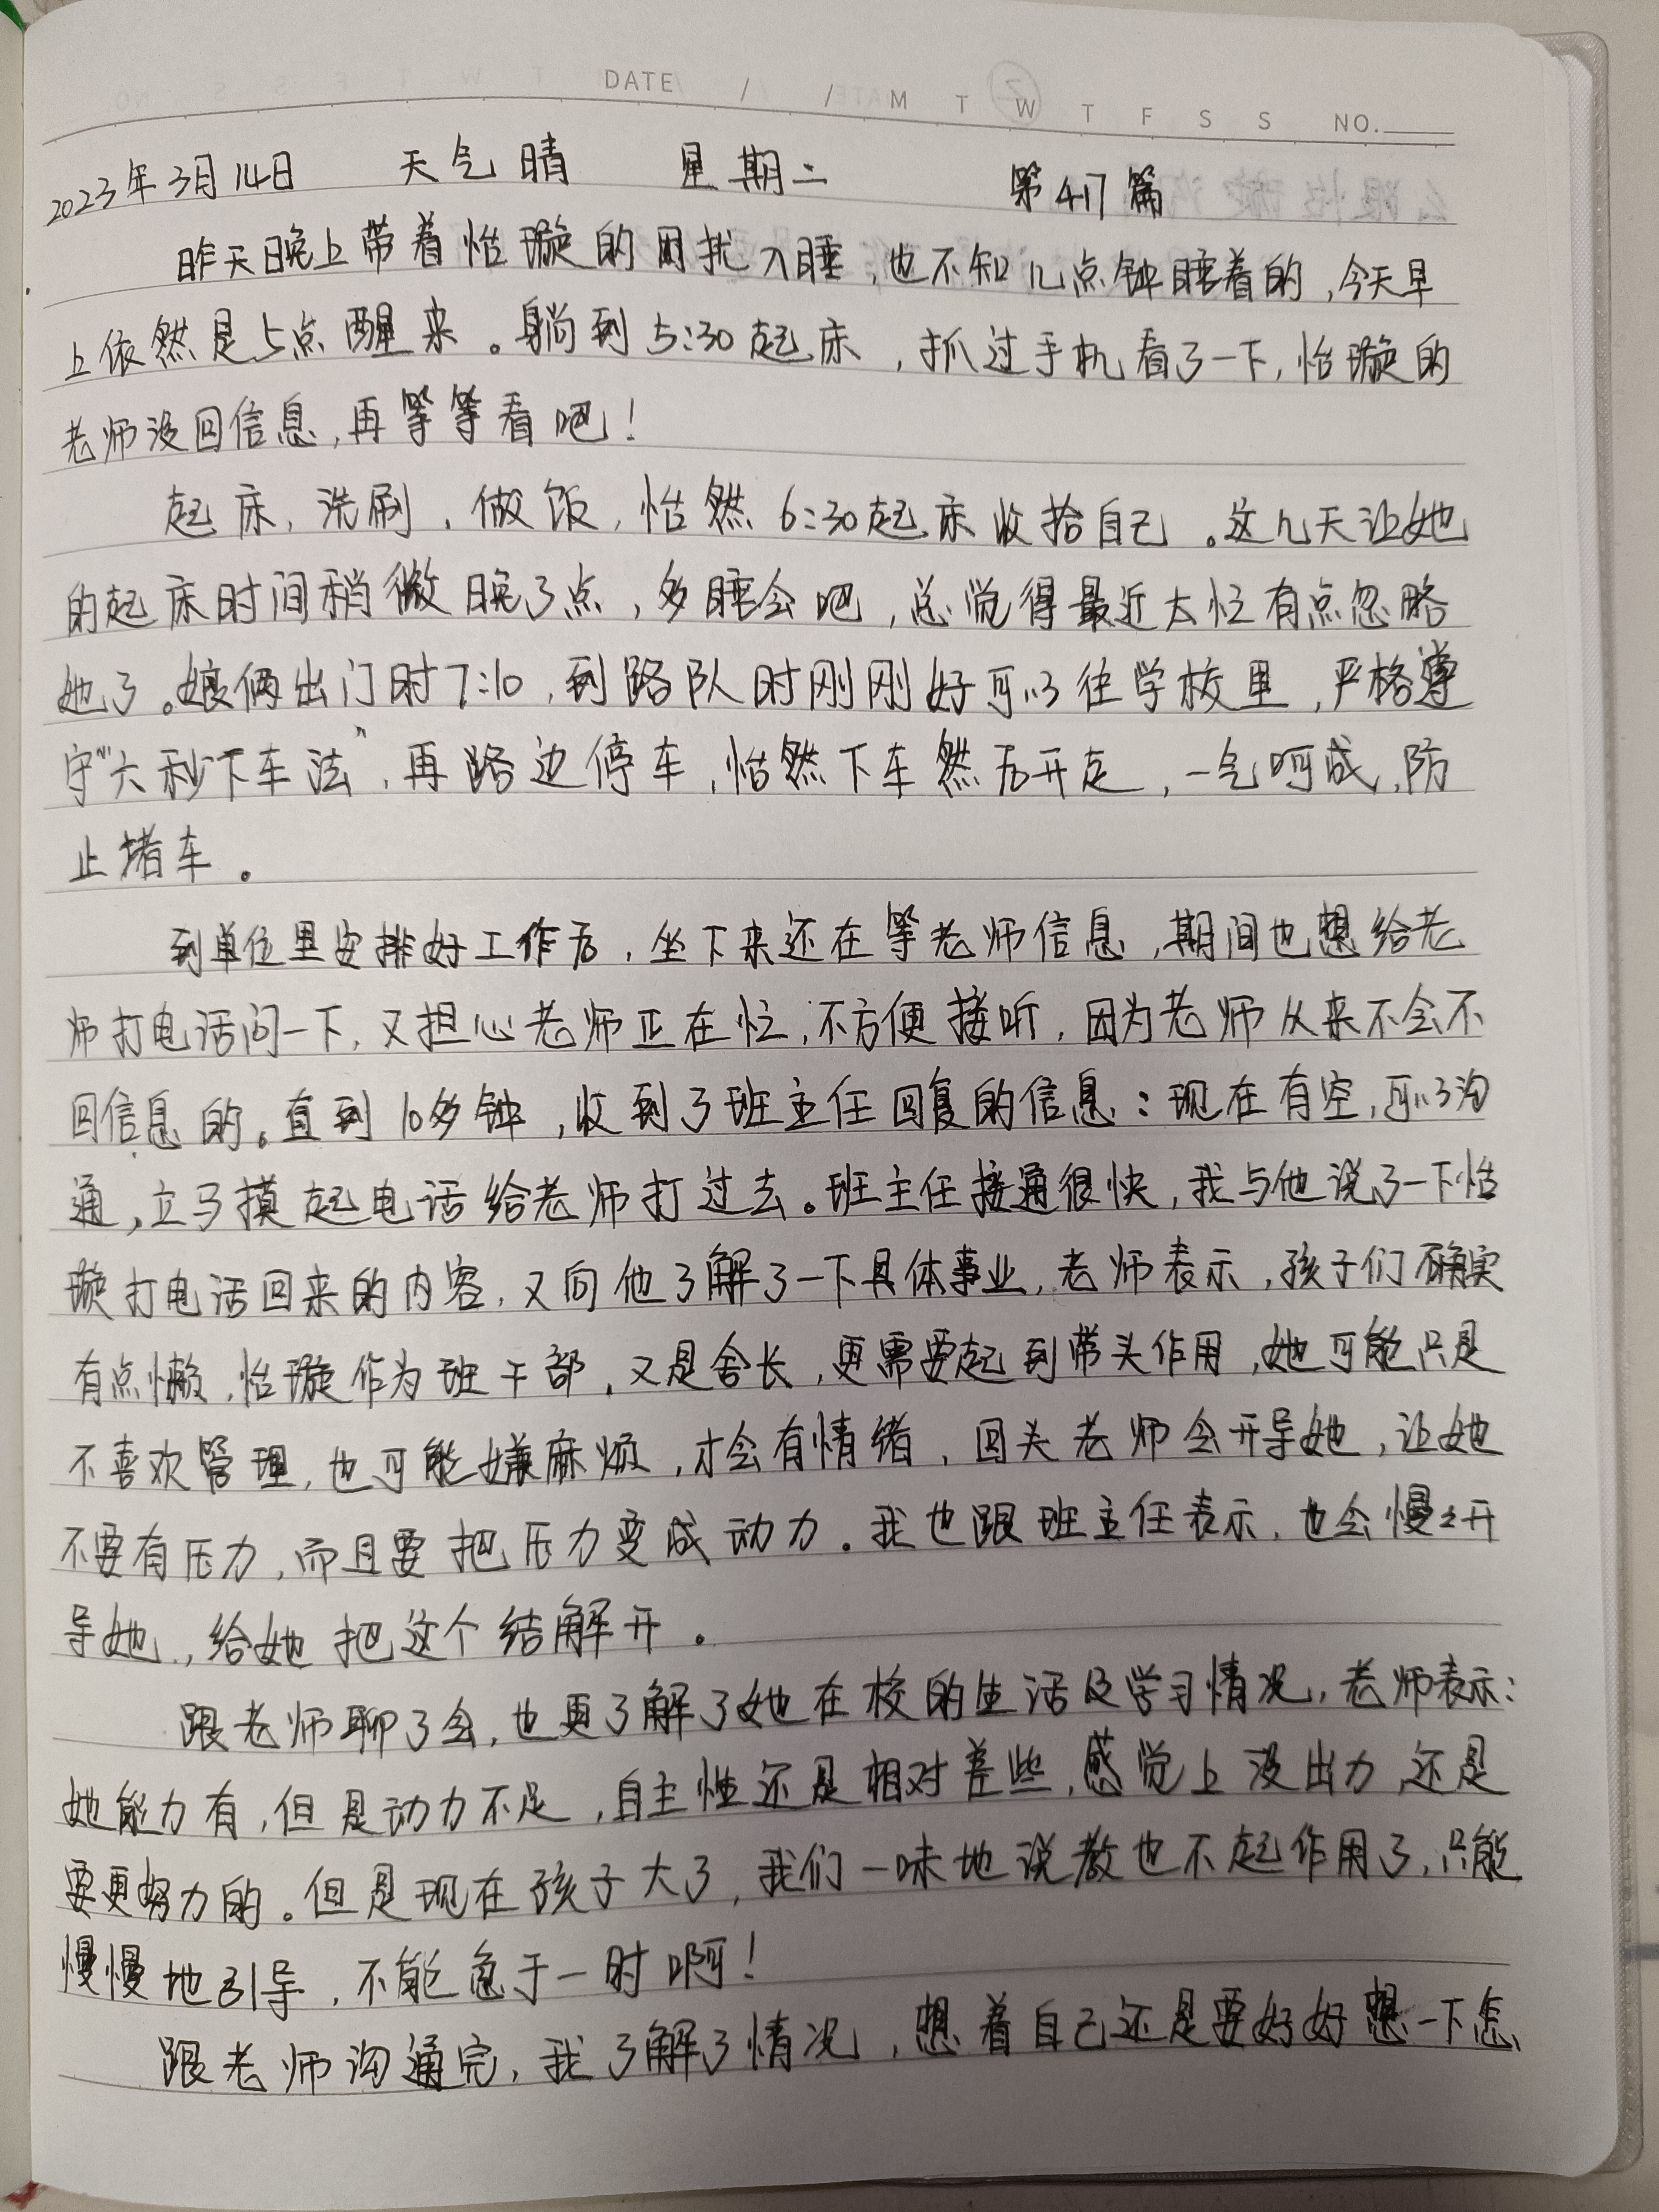 DATE / / M T W T F S S NO.
2023年3月14日 天气晴 星期二 第417篇
昨天晚上带着怡璇的困扰入睡,也不知几点钟睡着的,今天早
上依然是5点醒来。躺到5:30起床,抓过手机看了一下,怡璇的
老师没回信息,再等等看吧!
起床,洗刷,做饭,怡然6:30起床收拾自己。这几天让她
的起床时间稍微晚了点,多睡会吧,总觉得最近太忙有点忽略
她了。娘俩出门时7:10,到路队时刚刚好可以往学校里,严格遵
守“六秒下车法”,再路边停车,怡然下车然后开走,一气呵成,防
止堵车。
到单位里安排好工作后,坐下来还在等老师信息,期间也想给老
师打电话问一下,又担心老师正在忙,不方便接听,因为老师从来不会不
回信息的。直到10多钟,收到了班主任回复的信息:现在有空,可以沟
通,立马摸起电话给老师打过去。班主任接通很快,我与他说了一下怡
璇打电话回来的内容,又向他了解了一下具体事业,老师表示,孩子们确实
有点懒,怡璇作为班干部,又是舍长,更需要起到带头作用,她可能只是
不喜欢管理,也可能嫌麻烦,才会有情绪,回头老师会开导她,让她
不要有压力,而且要把压力变成动力。我也跟班主任表示,也会慢々开
导她,给她把这个结解开。
跟老师聊了会,也更了解了她在校的生活及学习情况,老师表示:
她能力有,但是动力不足,自主性还是相对差些,感觉上没出力,还是
要更努力的。但是现在孩子大了,我们一味地说教也不起作用了,只能
慢慢地引导,不能急于一时啊!
跟老师沟通完,我了解了情况,想着自己还是要好好想一下怎